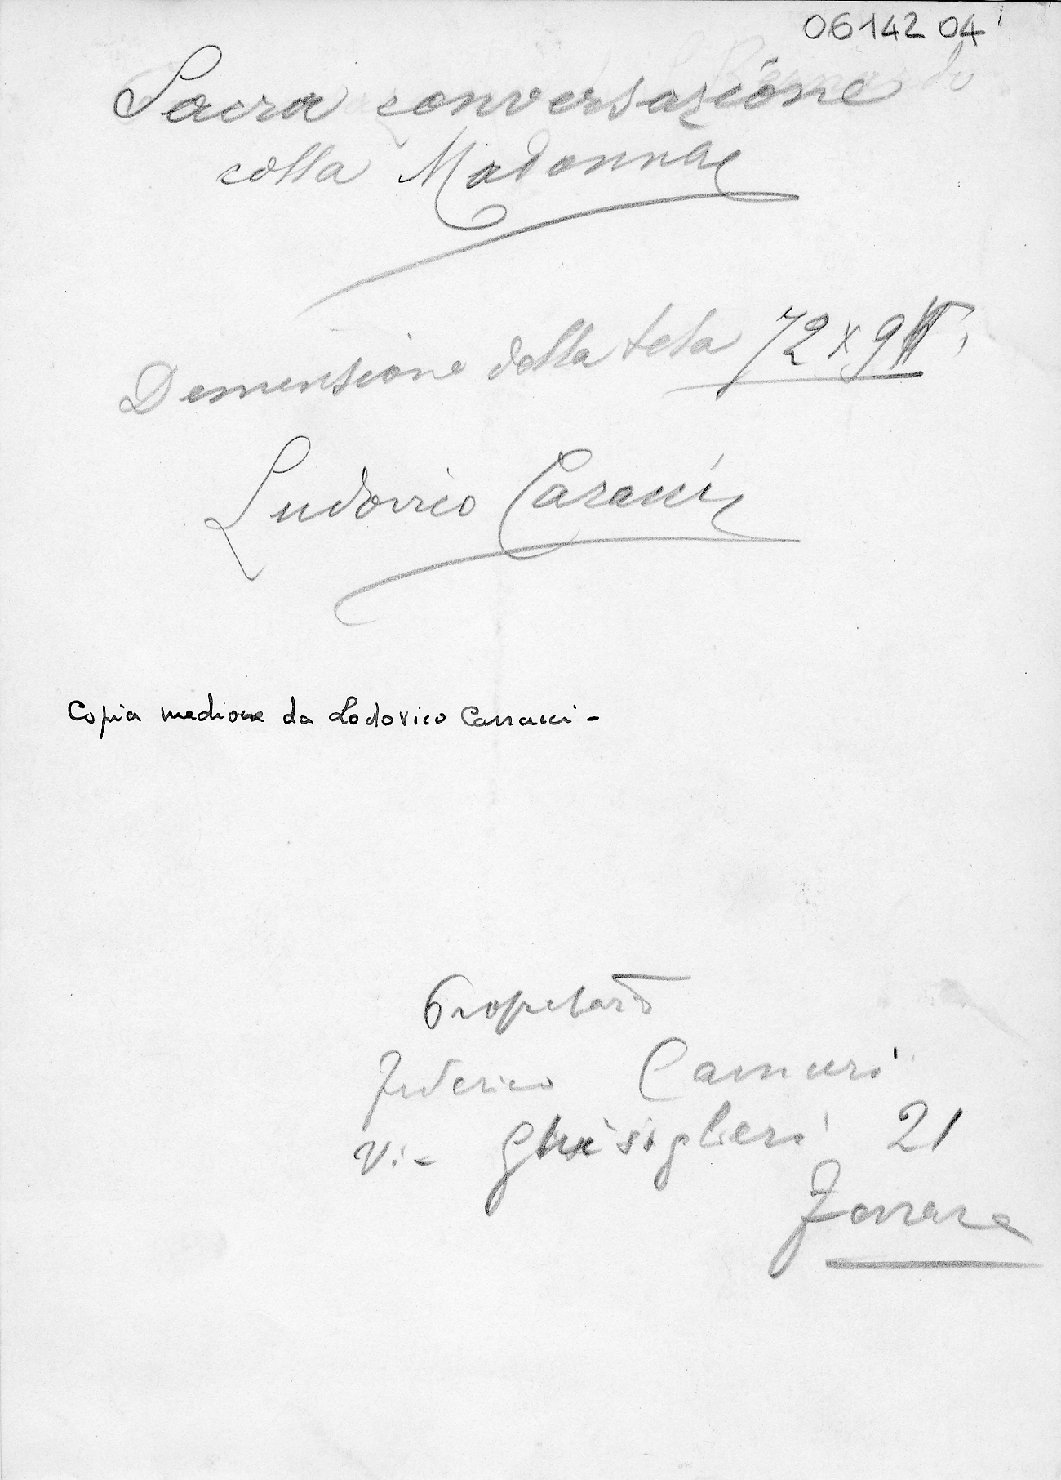 06142 04
Sacra conversazione
colla Madonna
Demensione della tela 72 x 9
Ludovico Caracci
Copia mediocre da Lodovico Carracci -
Propetario
Federico Camuri
Via Ghisiglieri 21
Ferrara